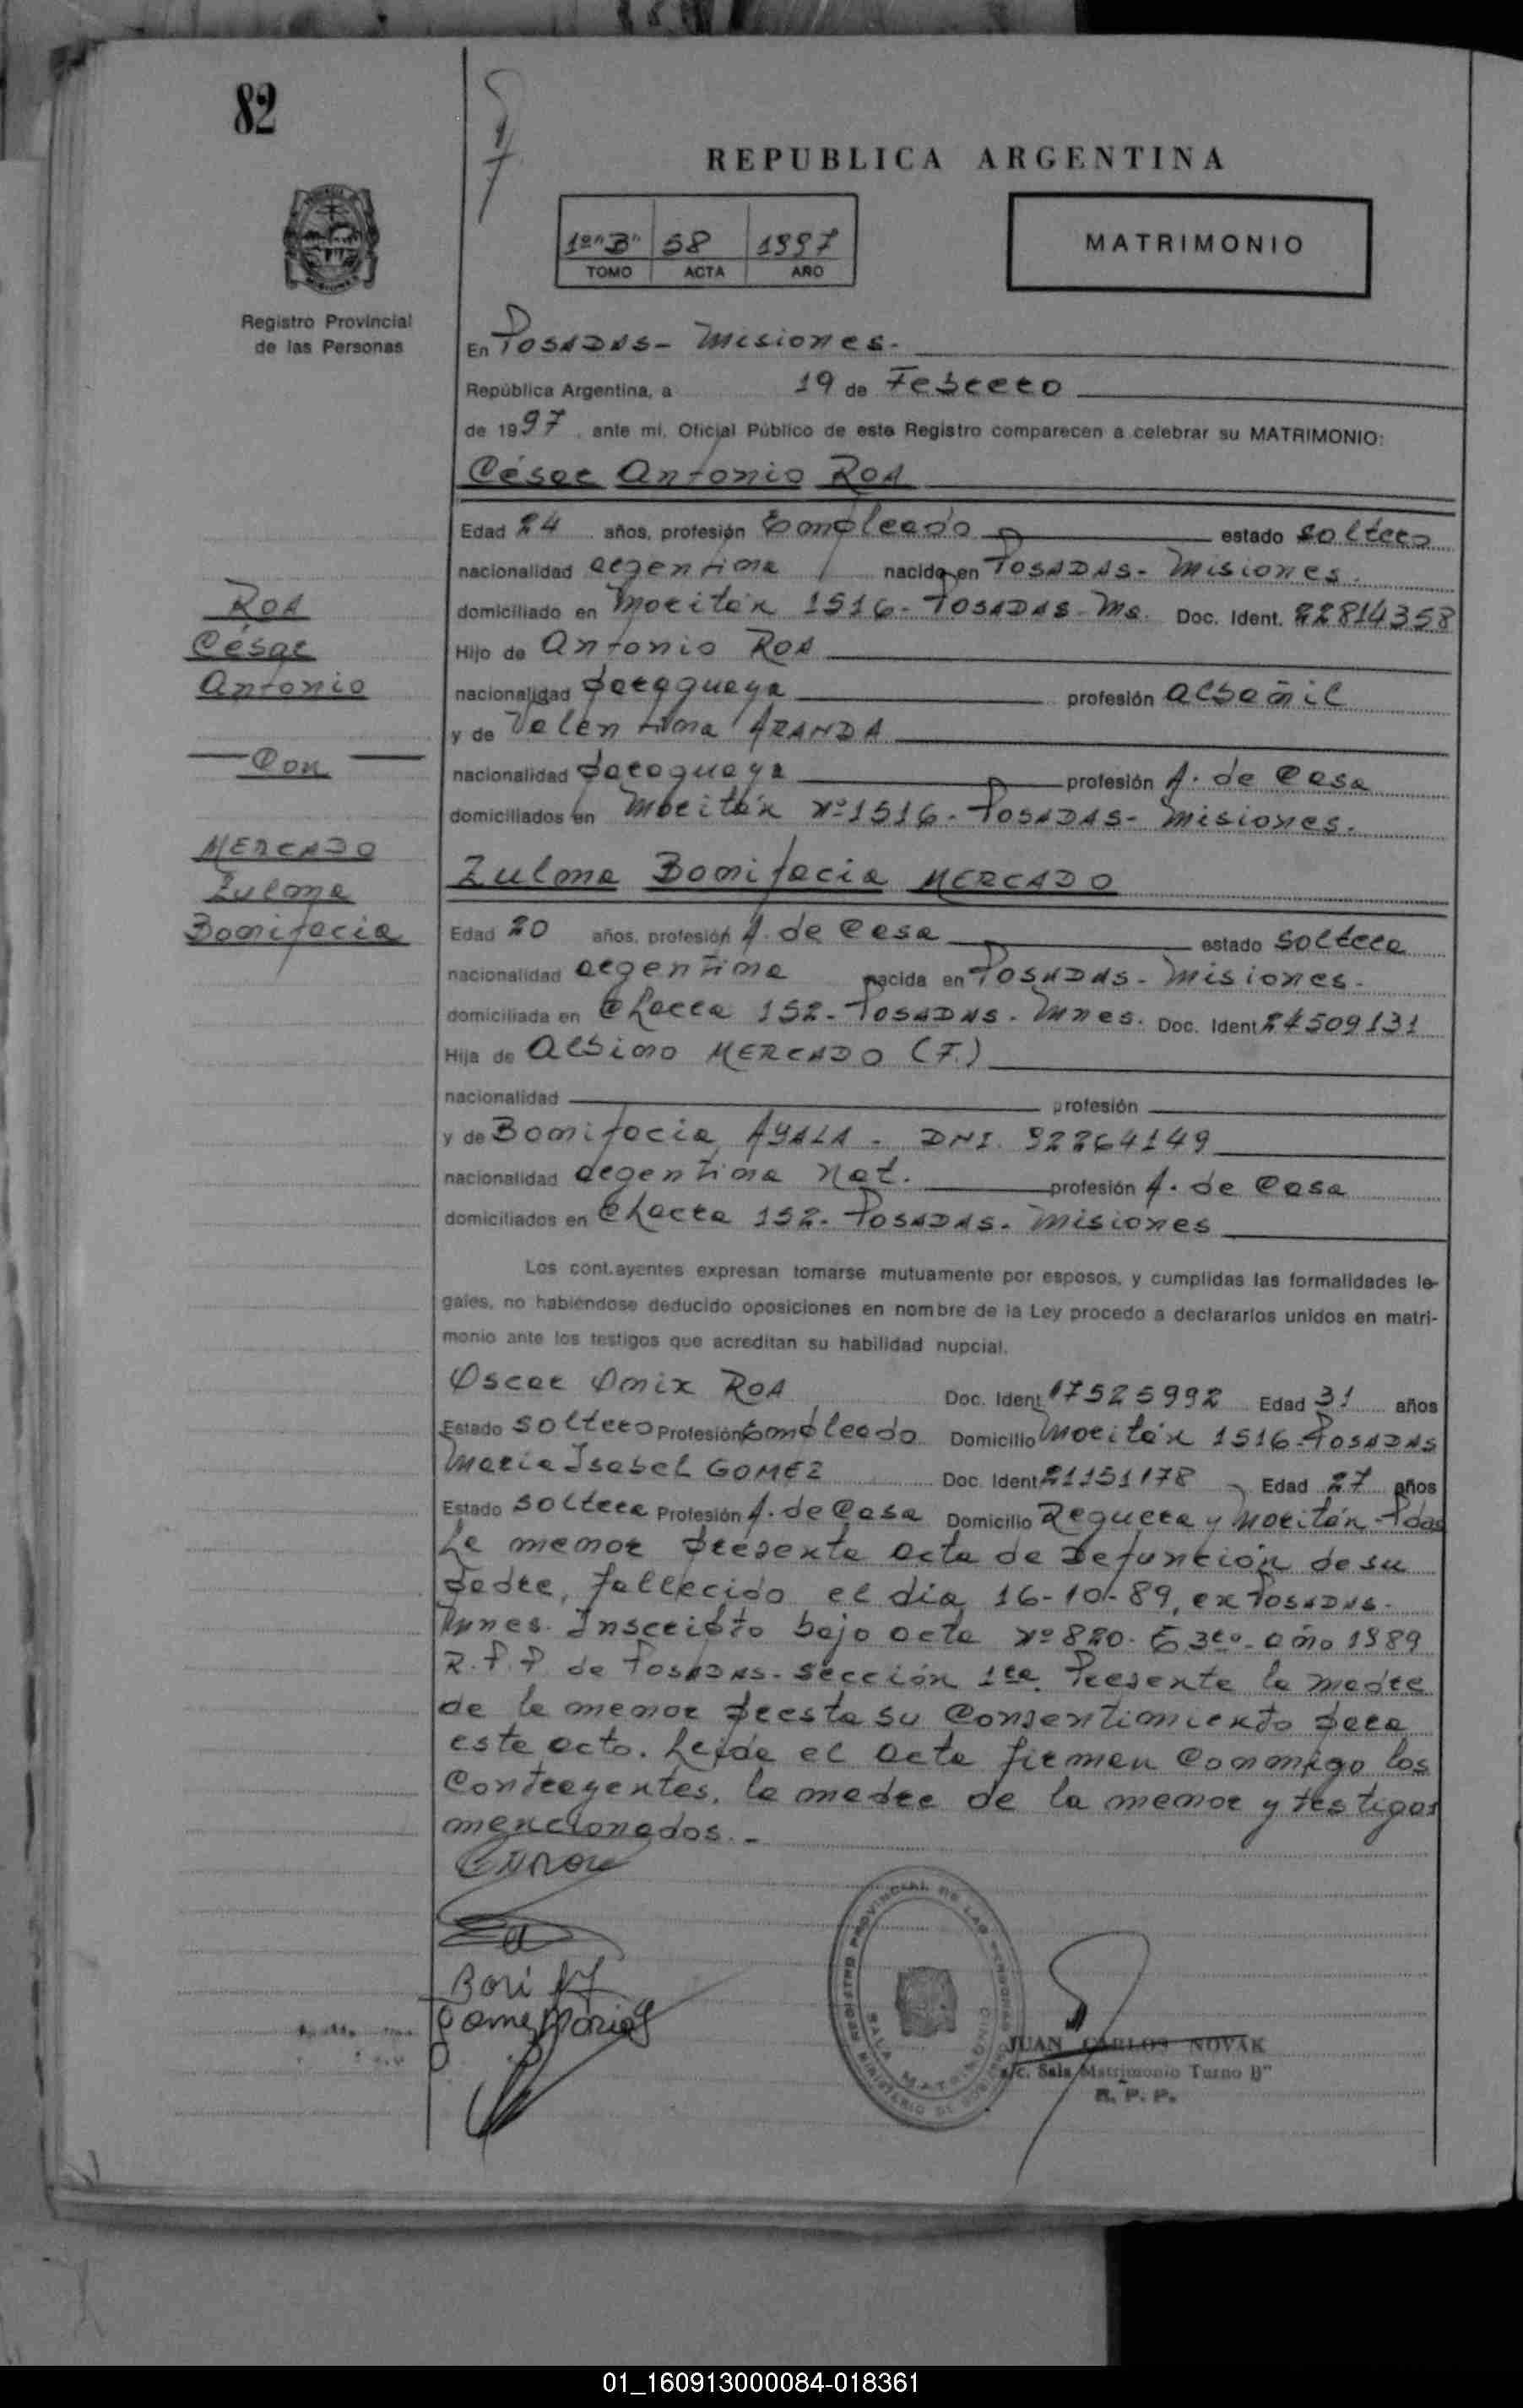 82
REPUBLICA ARGENTINA
1º "B" 58 1997
TOMO ACTA AÑO
MATRIMONIO
Registro Provincial
de las Personas
En POSADAS - Misiones.
República Argentina, a 19 de Febrero
de 1997, ante mí, Oficial Público de este Registro comparecen a celebrar su MATRIMONIO:
César Antonio ROA
Edad 24 años, profesión Empleado estado soltero
nacionalidad argentina nacido en POSADAS - Misiones.
domiciliado en Moritán 1516 - POSADAS - Ms. Doc. Ident. 22814358
Hijo de Antonio ROA
nacionalidad paraguaya profesión albañil
y de Valentina ARANDA
nacionalidad paraguaya profesión A. de Casa
domiciliados en Moritán Nº 1516 - POSADAS - Misiones.
ROA
César
Antonio
Con
MERCADO
Zulma
Bonifacia
Zulma Bonifacia MERCADO
Edad 20 años, profesión A. de Casa estado soltera
nacionalidad argentina nacida en POSADAS - Misiones.
domiciliada en Chacra 152 - POSADAS - Mnes. Doc. Ident 24509131
Hija de Albino MERCADO (F.)
nacionalidad profesión
y de Bonifacia AYALA - DNI. 92264149
nacionalidad argentina nat. profesión A. de Casa
domiciliados en Chacra 152 - POSADAS - Misiones
Los contrayentes expresan tomarse mutuamente por esposos, y cumplidas las formalidades le-
gales, no habiéndose deducido oposiciones en nombre de la Ley procedo a declararlos unidos en matri-
monio ante los testigos que acreditan su habilidad nupcial.
Oscar ROA Doc. Ident 17525992 Edad 31 años
Estado soltero Profesión Empleado Domicilio Moritán 1516 - POSADAS
Maria Isabel GOMEZ Doc. Ident 21151178 Edad 27 años
Estado soltera Profesión A. de Casa Domicilio Reguera y Moritán - Pdas
La menor presenta acta de Defunción de su
padre, fallecido el día 16-10-89, en POSADAS -
Mnes. Inscripto bajo acta Nº 820. 3ro. año 1989
R.P.P. de POSADAS - sección 1ra. Presente la madre
de la menor presta su consentimiento para
este acto. Leída el acta firman conmigo los
contrayentes, la madre de la menor y testigos
mencionados. -
REGISTRO PROVINCIAL DE LAS PERSONAS
SALA MATRIMONIO
MINISTERIO DE GOBIERNO
JUAN CARLOS NOVAK
a/c. Sala Matrimonio Turno B"
R. P. P.
01_160913000084-018361